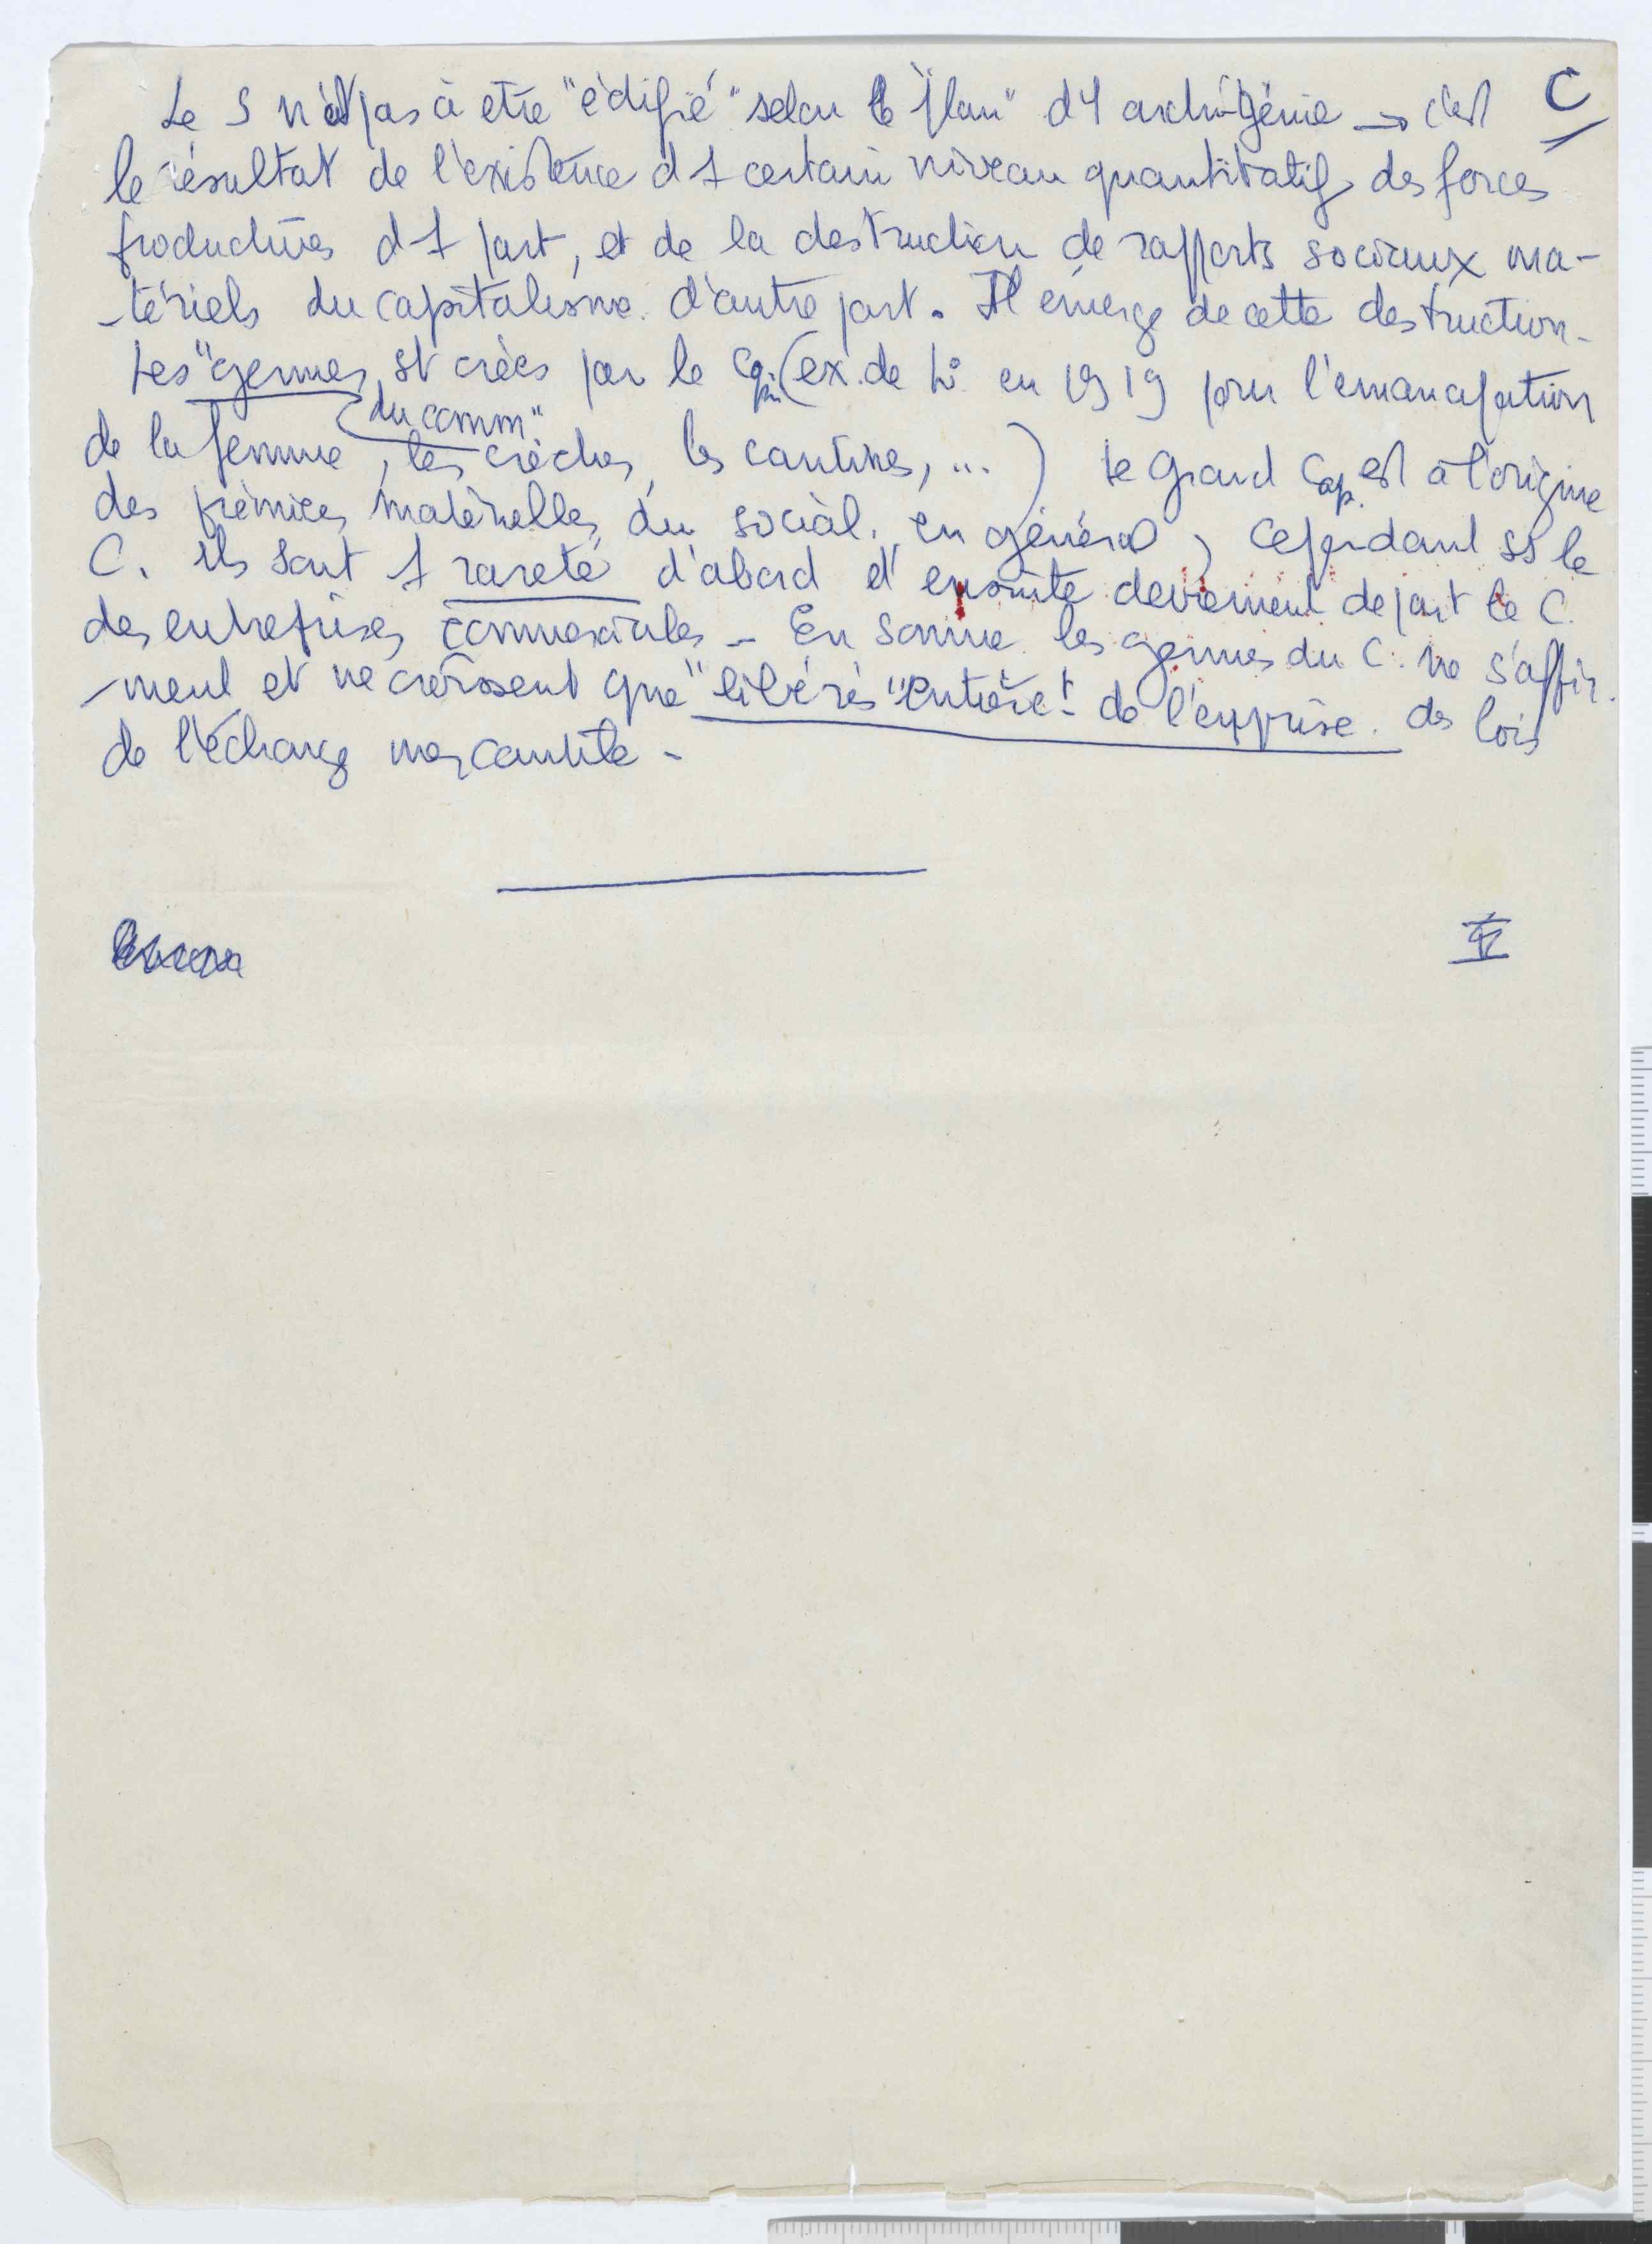 C
Le S n'est pas à etre "édifié" selon le "plan" d'1 archi-génie → c'est
le résultat de l'existence d 1 certain niveau quantitatif des forces
productives d 1 part, et de la destruction de rapports sociaux ma-
-tériels du capitalisme d'autre part. Il émerge de cette destruction.
Les "germes st créés par le (ex. de L. en 1919 pour l'émancipation
du comm"
de la femme, les crèches, les cantines, ...) Le grand Cap. est à l'origine
des prémices matérielles du social. en général, cependant ss le
C. ils sont 1 rareté d'abord et ensuite deviennent de part le C.
des entreprises commerciales - En somme les germes du C. ne s'affir.
-ment et ne croissent que "libérés" entièret de l'emprise des lois
de l'échange mercantile -